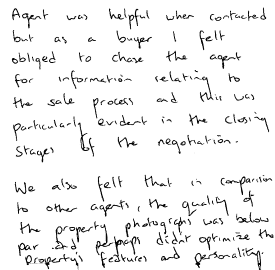 Agent was helpful when contacted
but as a buyer I felt
obliged to chase the agent
for information relating to
the sale process and this was
particularly evident in the closing
stages of the negotiation.
We also felt that in comparison
to other agents, the quality of
the property photographs was below
par and perhaps didnt optimize the
property's features and personality.